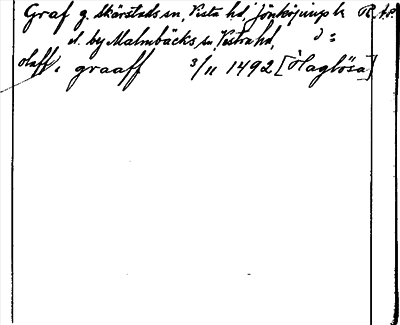 Graf g. Skärstads sn, Vista hd Jönköpings l. R. A. P.
el. by Malmbäcks sn, Västra hd,
Olaff i graaff 3/11 1492 [Ölaglösa]